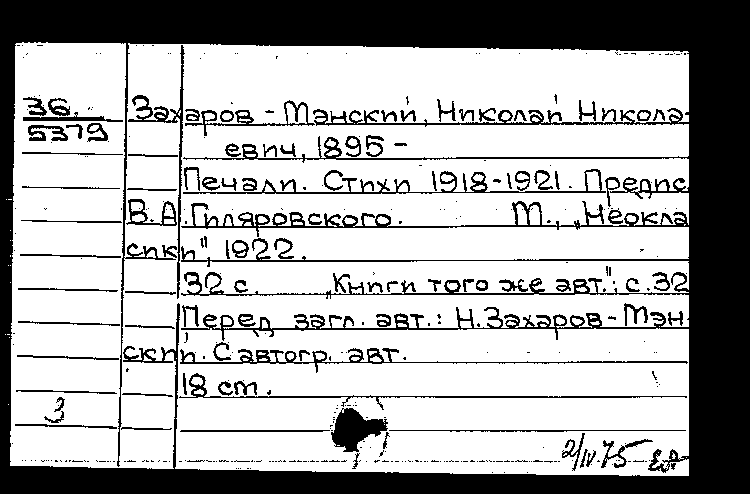 36.
5379
Захаров-Мэнский, Николай Никола-
евич, 1895 -
Печали. Стихи 1918-1921. Предис
В. А. Гиляровского. М., „Неокла
сики", 1922.
32 с. „Книги того же авт.": с. 32
Перед загл. авт.: Н. Захаров-Мэн-
ский. С автогр. авт.
18 см.
3
2/IV.75